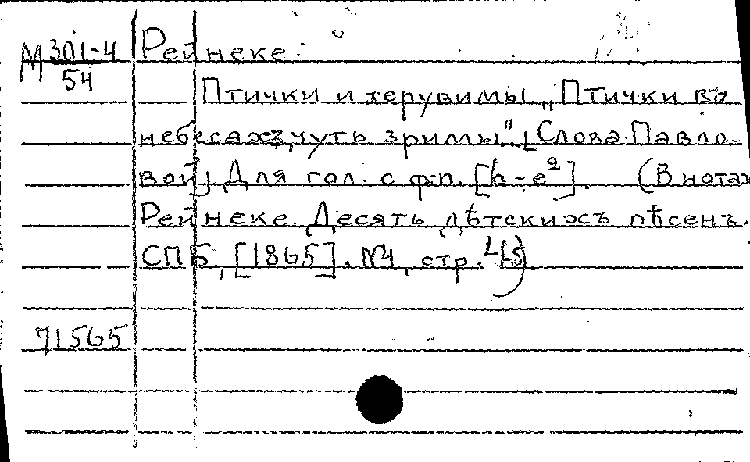 М 301-4
54
Рейнеке.
Птички и херувимы „Птички въ
небесахъ чуть зримы" [Слова Павло-
вой] Для гол. с ф-п. [h-e²]. (В нотах
Рейнеке. Десять дѣтскихъ пѣсенъ.
СПБ, [1865]. №4, стр. 4-5)
71565